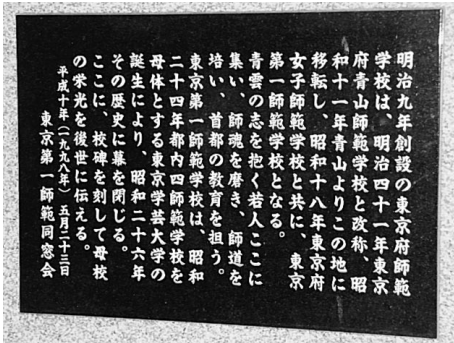 明治九年創設の東京府師範
学校は、明治四十一年東京
府青山師範学校と改称、昭
和十一年青山よりこの地に
移転し、昭和十八年東京府
女子師範学校と共に、東京
第一師範学校となる。
青雲の志を抱く若人ここに
集い、師魂を磨き、師道を
培い、首都の教育を担う。
東京第一師範学校は、昭和
二十四年都内四師範学校を
母体とする東京学芸大学の
誕生により、昭和二十六年
その歴史に幕を閉じる。
ここに、校碑を刻して母校
の栄光を後世に伝える。
平成十年(一九九八年)五月二十三日
東京第一師範同窓会